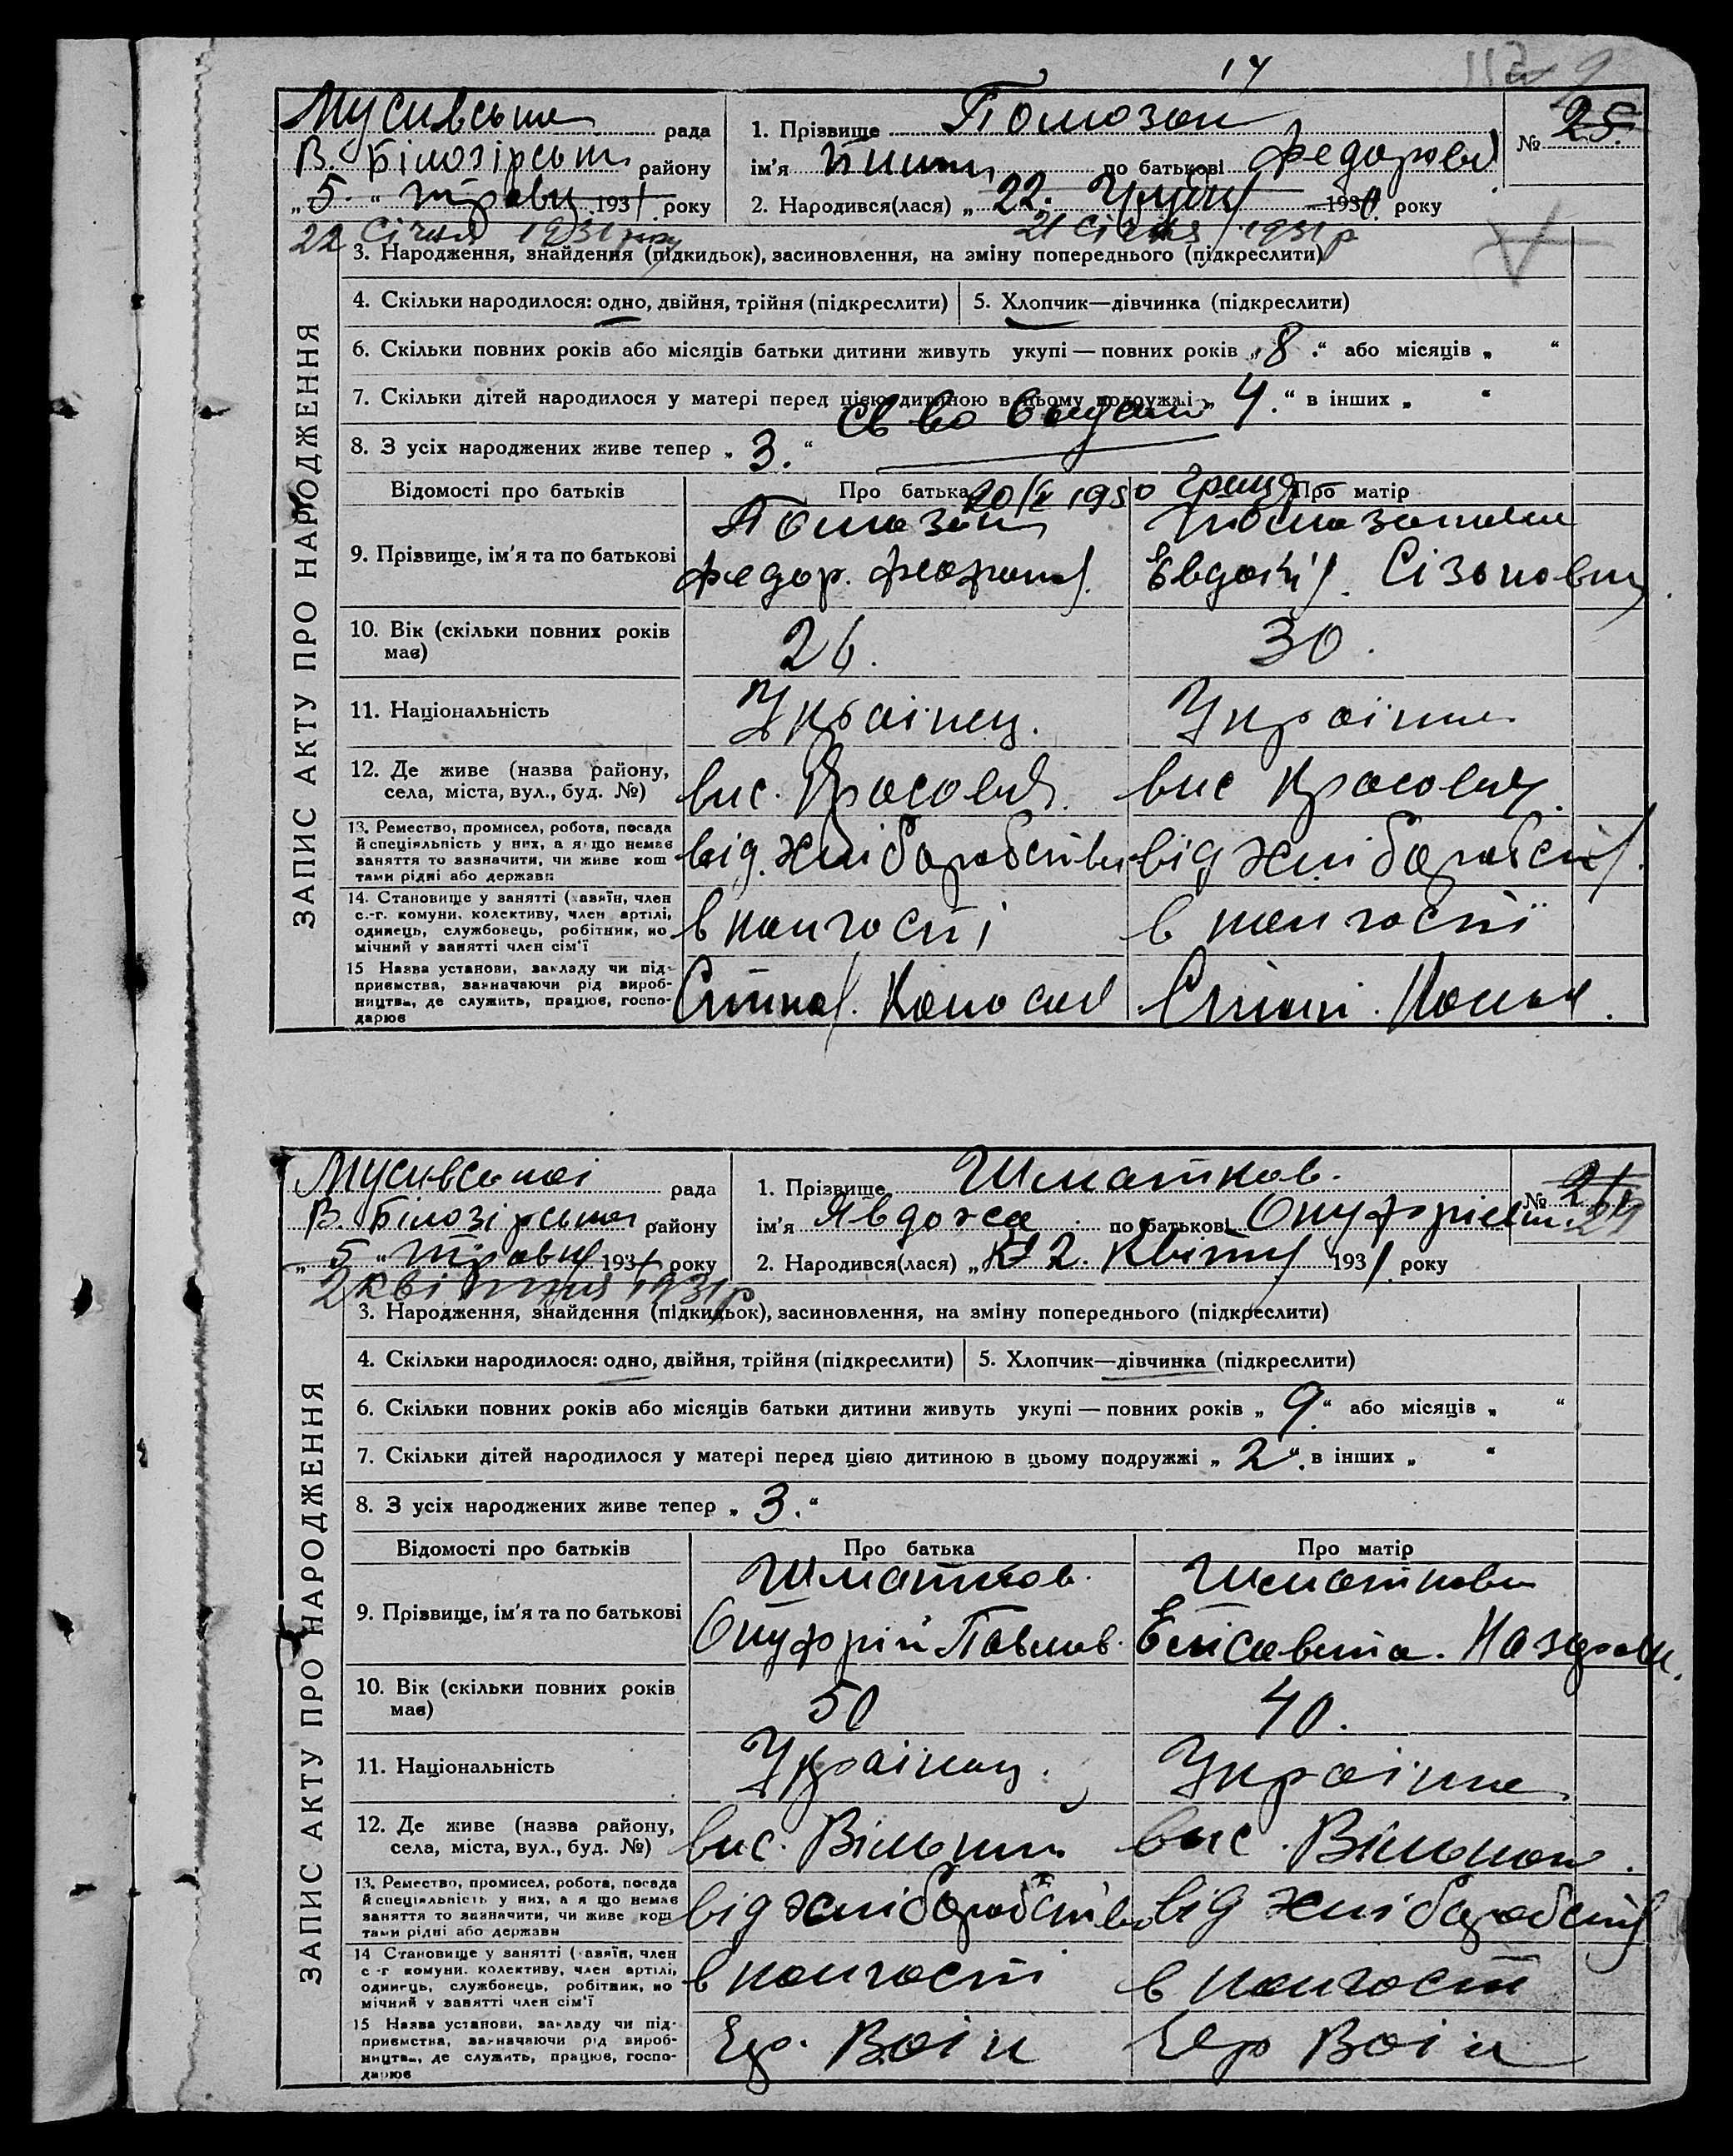 17
Мусиівська рада
В. Білозірськ району
„5.“ травн 1931 року
22 Січня 1931 року
1. Прізвище Помозан
ім'я по батькові Федорові
№ 25.
2. Народився(лася) „22. 193 року
21 Січня 1931 р
3. Народження, знайдення (підкидьок), засиновлення, на зміну попереднього (підкреслити)
4. Скільки народилося: одно, двійня, трійня (підкреслити)
5. Хлопчик—дівчинка (підкреслити)
6. Скільки повних років або місяців батьки дитини живуть укупі — повних років „8.“ або місяців „ “
7. Скільки дітей народилося у матері перед цією дитиною в цьому подружжі „4.“ в інших „ “
Св во видан
8. З усіх народжених живе тепер „3.“
Відомості про батьків
Про батька
Про матір
9. Прізвище, ім'я та по батькові
Помозан
Федор.
Помазанова
Евдокія. Сізоновна
10. Вік (скільки повних років має)
26.
30.
11. Національність
Украінец.
Украінка
12. Де живе (назва району, села, міста, вул., буд. №)
вис.
вис
13. Ремество, промисел, робота, посада
й спеціяльність у них, а якщо немає
заняття то зазначити, чи живе кош
тами рідні або держави
від. хліборобства
від хліборобств
14. Становище у занятті (хазяїн, член
с.-г. комуни, колективу, член артілі,
одинець, службовець, робітник, по
мічний у занятті член сім'ї
в колгоспі
в колгоспі
15 Назва установи, закладу чи під-
приємства, зазначаючи рід вироб-
ництва, де служить, працює, госпо-
дарює
ЗАПИС АКТУ ПРО НАРОДЖЕННЯ
Мусиівськоі рада
В. Білозірськоі району
„5“ травня 1931 року
2 квітня 1931 р
1. Прізвище Шматков.
ім'я Явдоха по батькові Онуфрієвн.
№
2. Народився(лася) „2. Квітня 1931 року
3. Народження, знайдення (підкидьок), засиновлення, на зміну попереднього (підкреслити)
4. Скільки народилося: одно, двійня, трійня (підкреслити)
5. Хлопчик—дівчинка (підкреслити)
6. Скільки повних років або місяців батьки дитини живуть укупі — повних років „9.“ або місяців „ “
7. Скільки дітей народилося у матері перед цією дитиною в цьому подружжі „2“. в інших „ “
8. З усіх народжених живе тепер „3.“
Відомості про батьків
Про батька
Про матір
9. Прізвище, ім'я та по батькові
Шматков.
Онуфрій Павлов.
Шматкова
Елісавета. Назаров.
10. Вік (скільки повних років має)
50
40.
11. Національність
Украінец.
Украінка
12. Де живе (назва району, села, міста, вул., буд. №)
вис.
вис.
13. Ремество, промисел, робота, посада
й спеціяльність у них, а якщо немає
заняття то зазначити, чи живе кош
тами рідні або держави
від хліборобства
від хліборобств
14 Становище у занятті (хазяїн, член
с-г комуни, колективу, член артілі,
одинець, службовець, робітник, по
мічний у занятті член сім'ї
в колгоспі
в колгоспі
15 Назва установи, закладу чи під-
приємства, зазначаючи рід вироб-
ництва, де служить, працює, госпо-
дарює
Воін
Воін
ЗАПИС АКТУ ПРО НАРОДЖЕННЯ